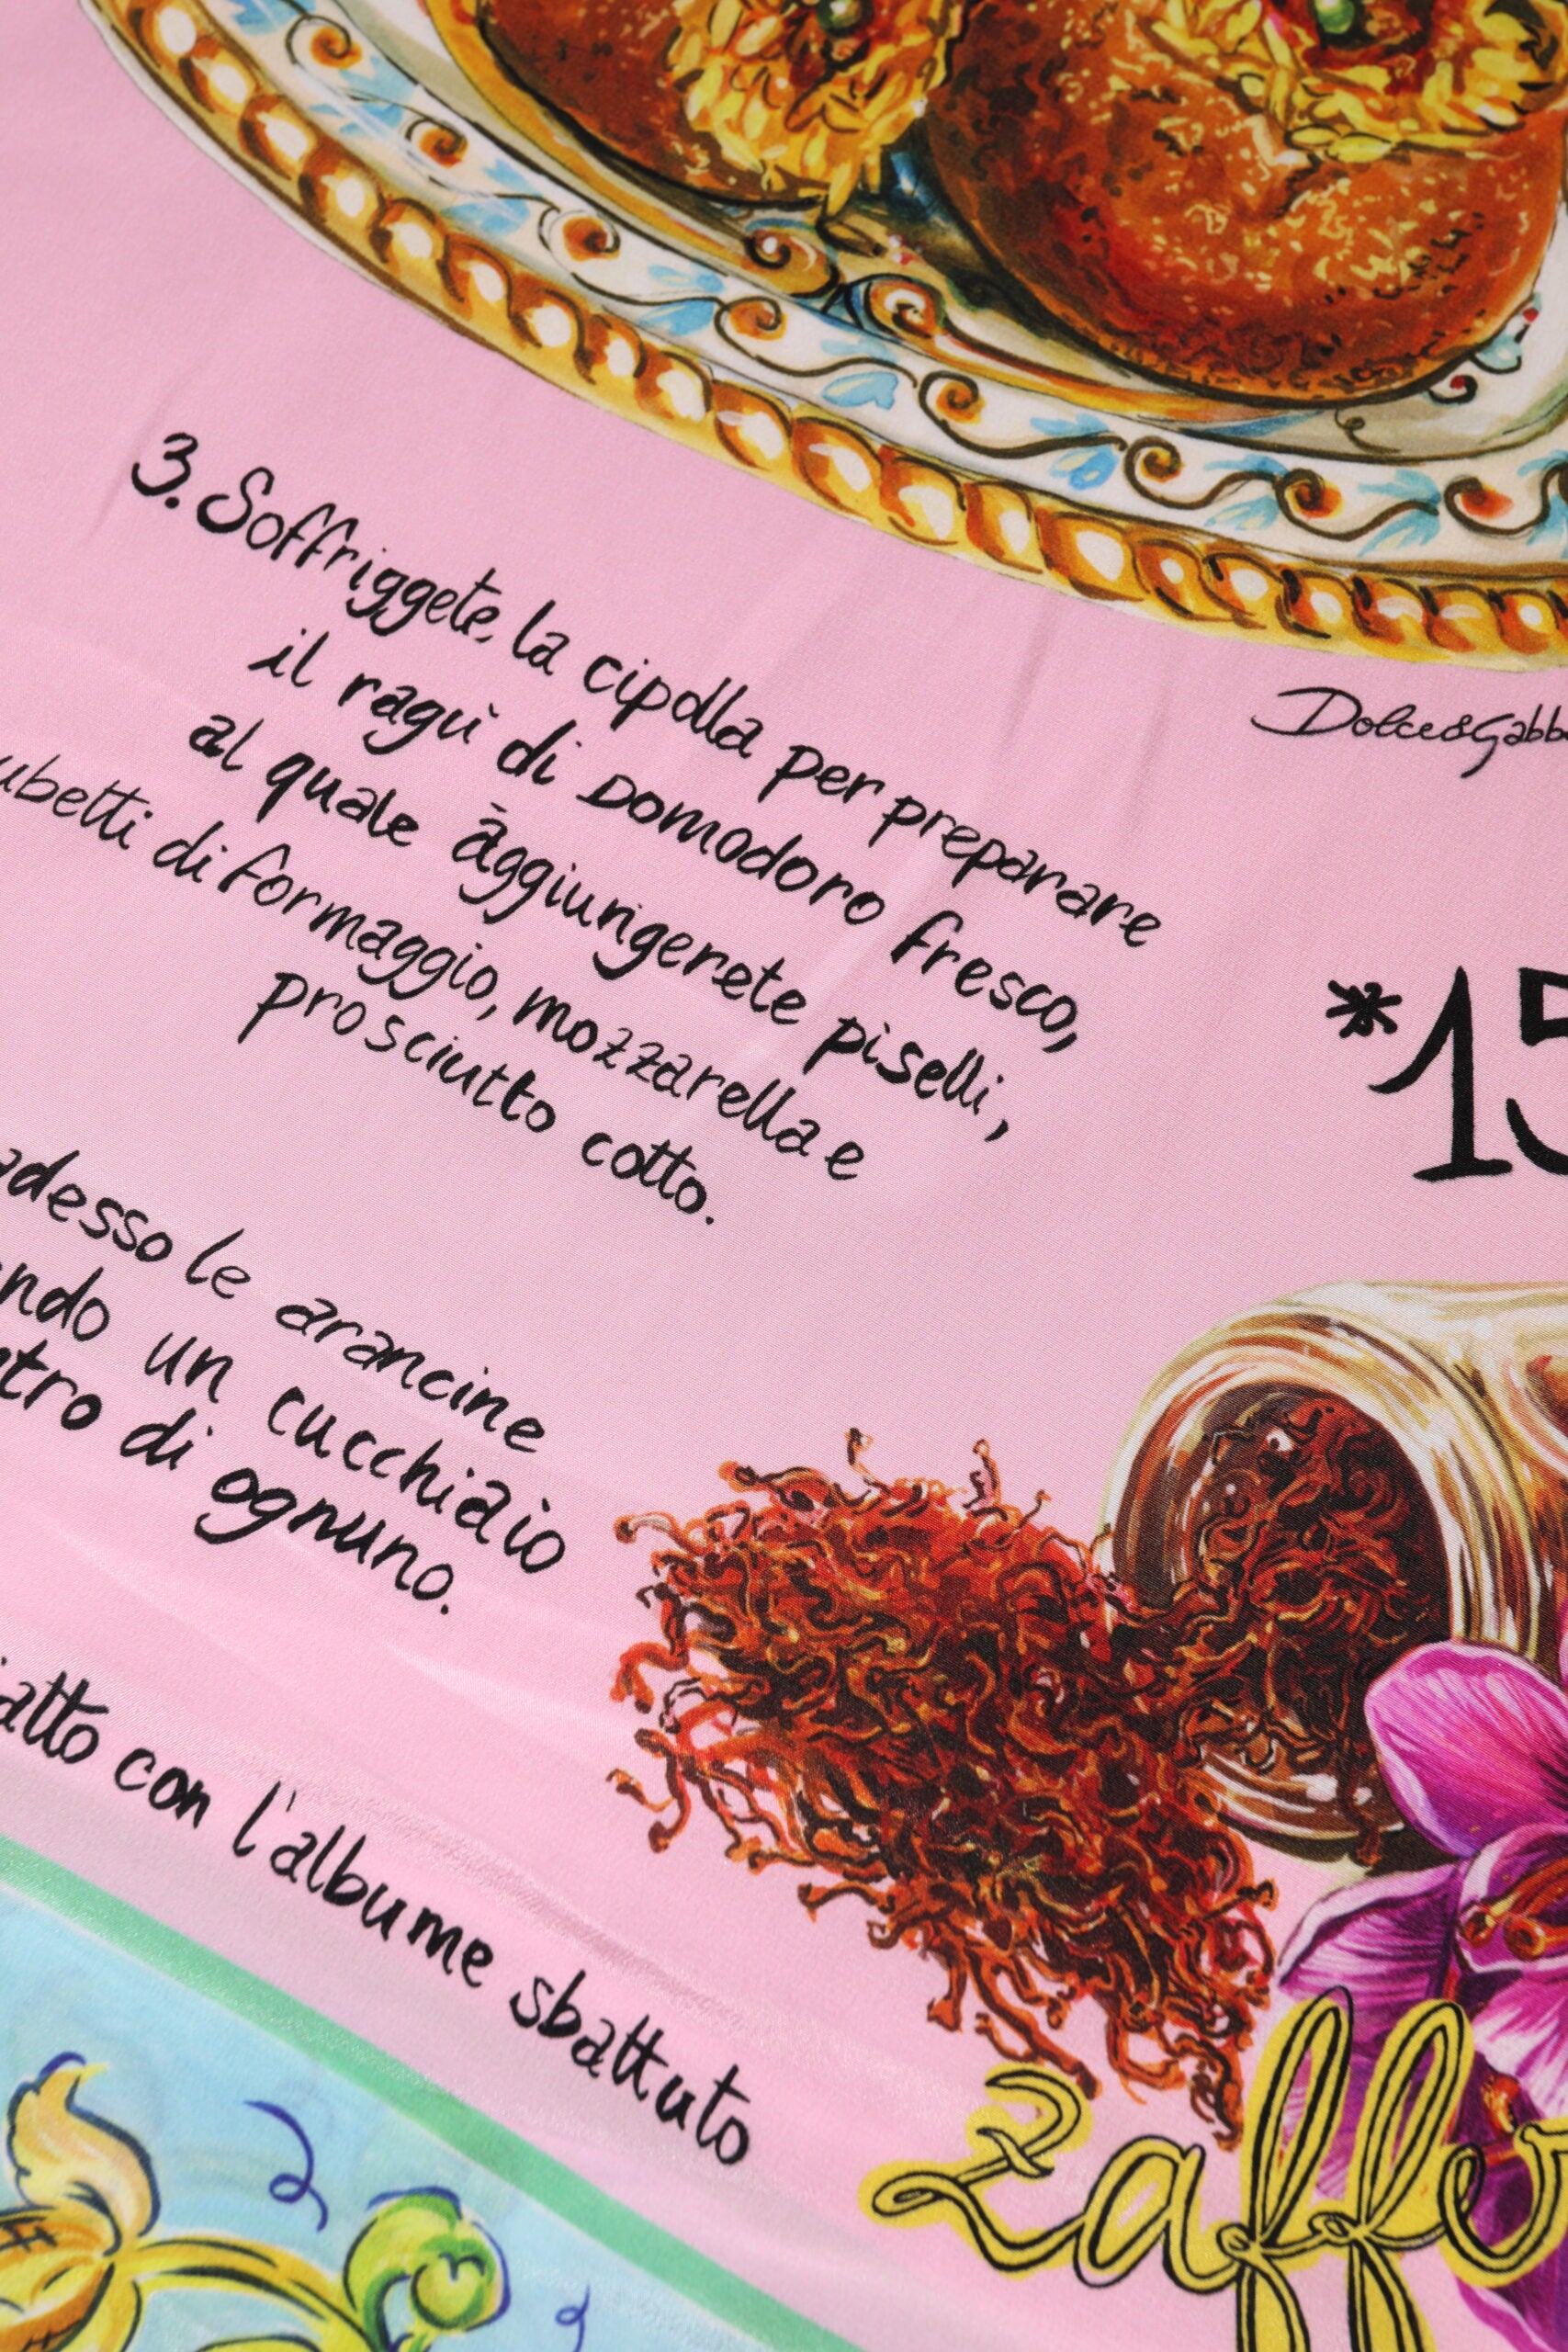 3. Soffriggete la cipolla per preparare
il ragù di Domodoro fresco,
al quale aggiungerete piselli,
ubetti di formaggio, mozzarella e
prosciutto cotto.
Dolce&Gabb
*15
adesso le arancine
ndo un cucchiaio
ntro di ognuno.
iatto con l'albume sbattuto
zaffe